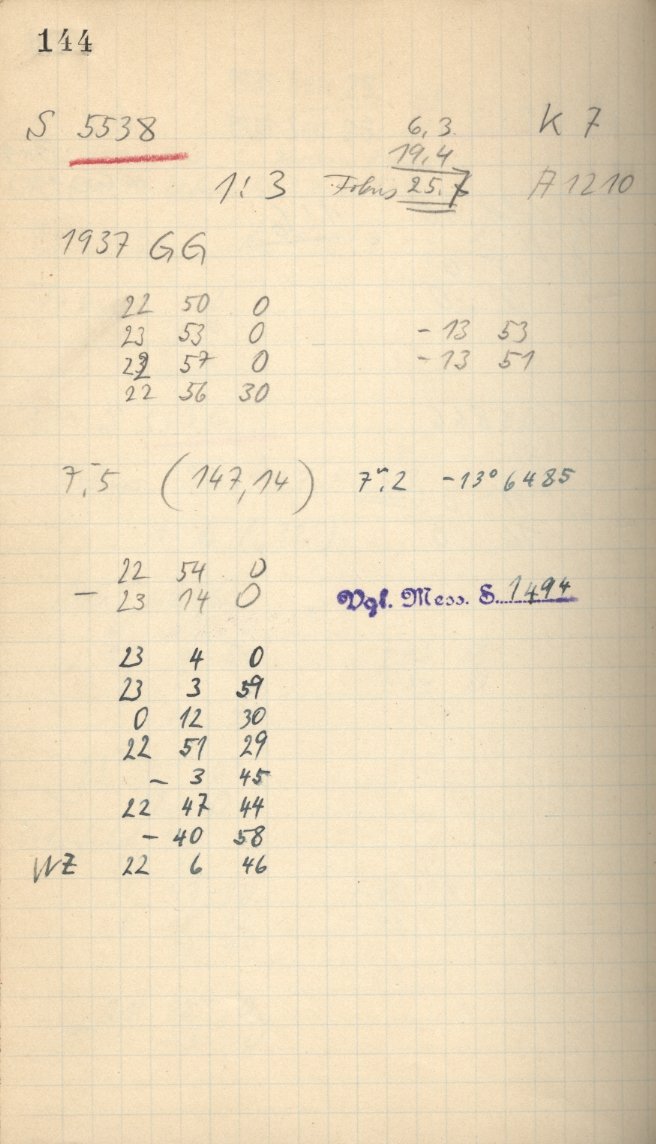 144
S 5538 6,3 K 7
19,4
1:3 Fokus 25.7 A 1210
1937 GG
22 50 0
23 53 0 - 13 53
22 57 0 - 13 51
22 56 30
7,5 (147,14) 7m,2 -13° 6485
22 54 0
— 23 14 0 Vgl. Mess. S. 1494
23 4 0
23 3 59
0 12 30
22 51 29
- 3 45
22 47 44
- 40 58
WZ 22 6 46